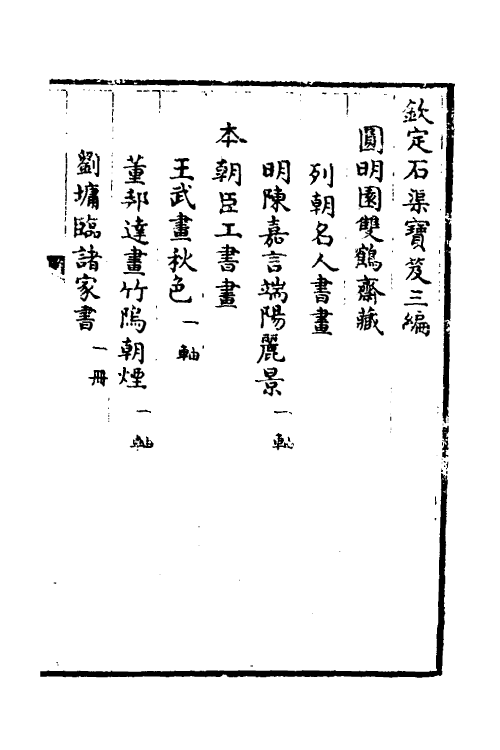 欽定石渠寶笈三編
圓明園雙鶴齋藏
列朝名人書畫
明陳嘉言端陽麗景一軸
本朝臣工書畫
王武畫秋色一軸
董邦達畫竹隖朝煙一軸
劉墉臨諸家書一冊